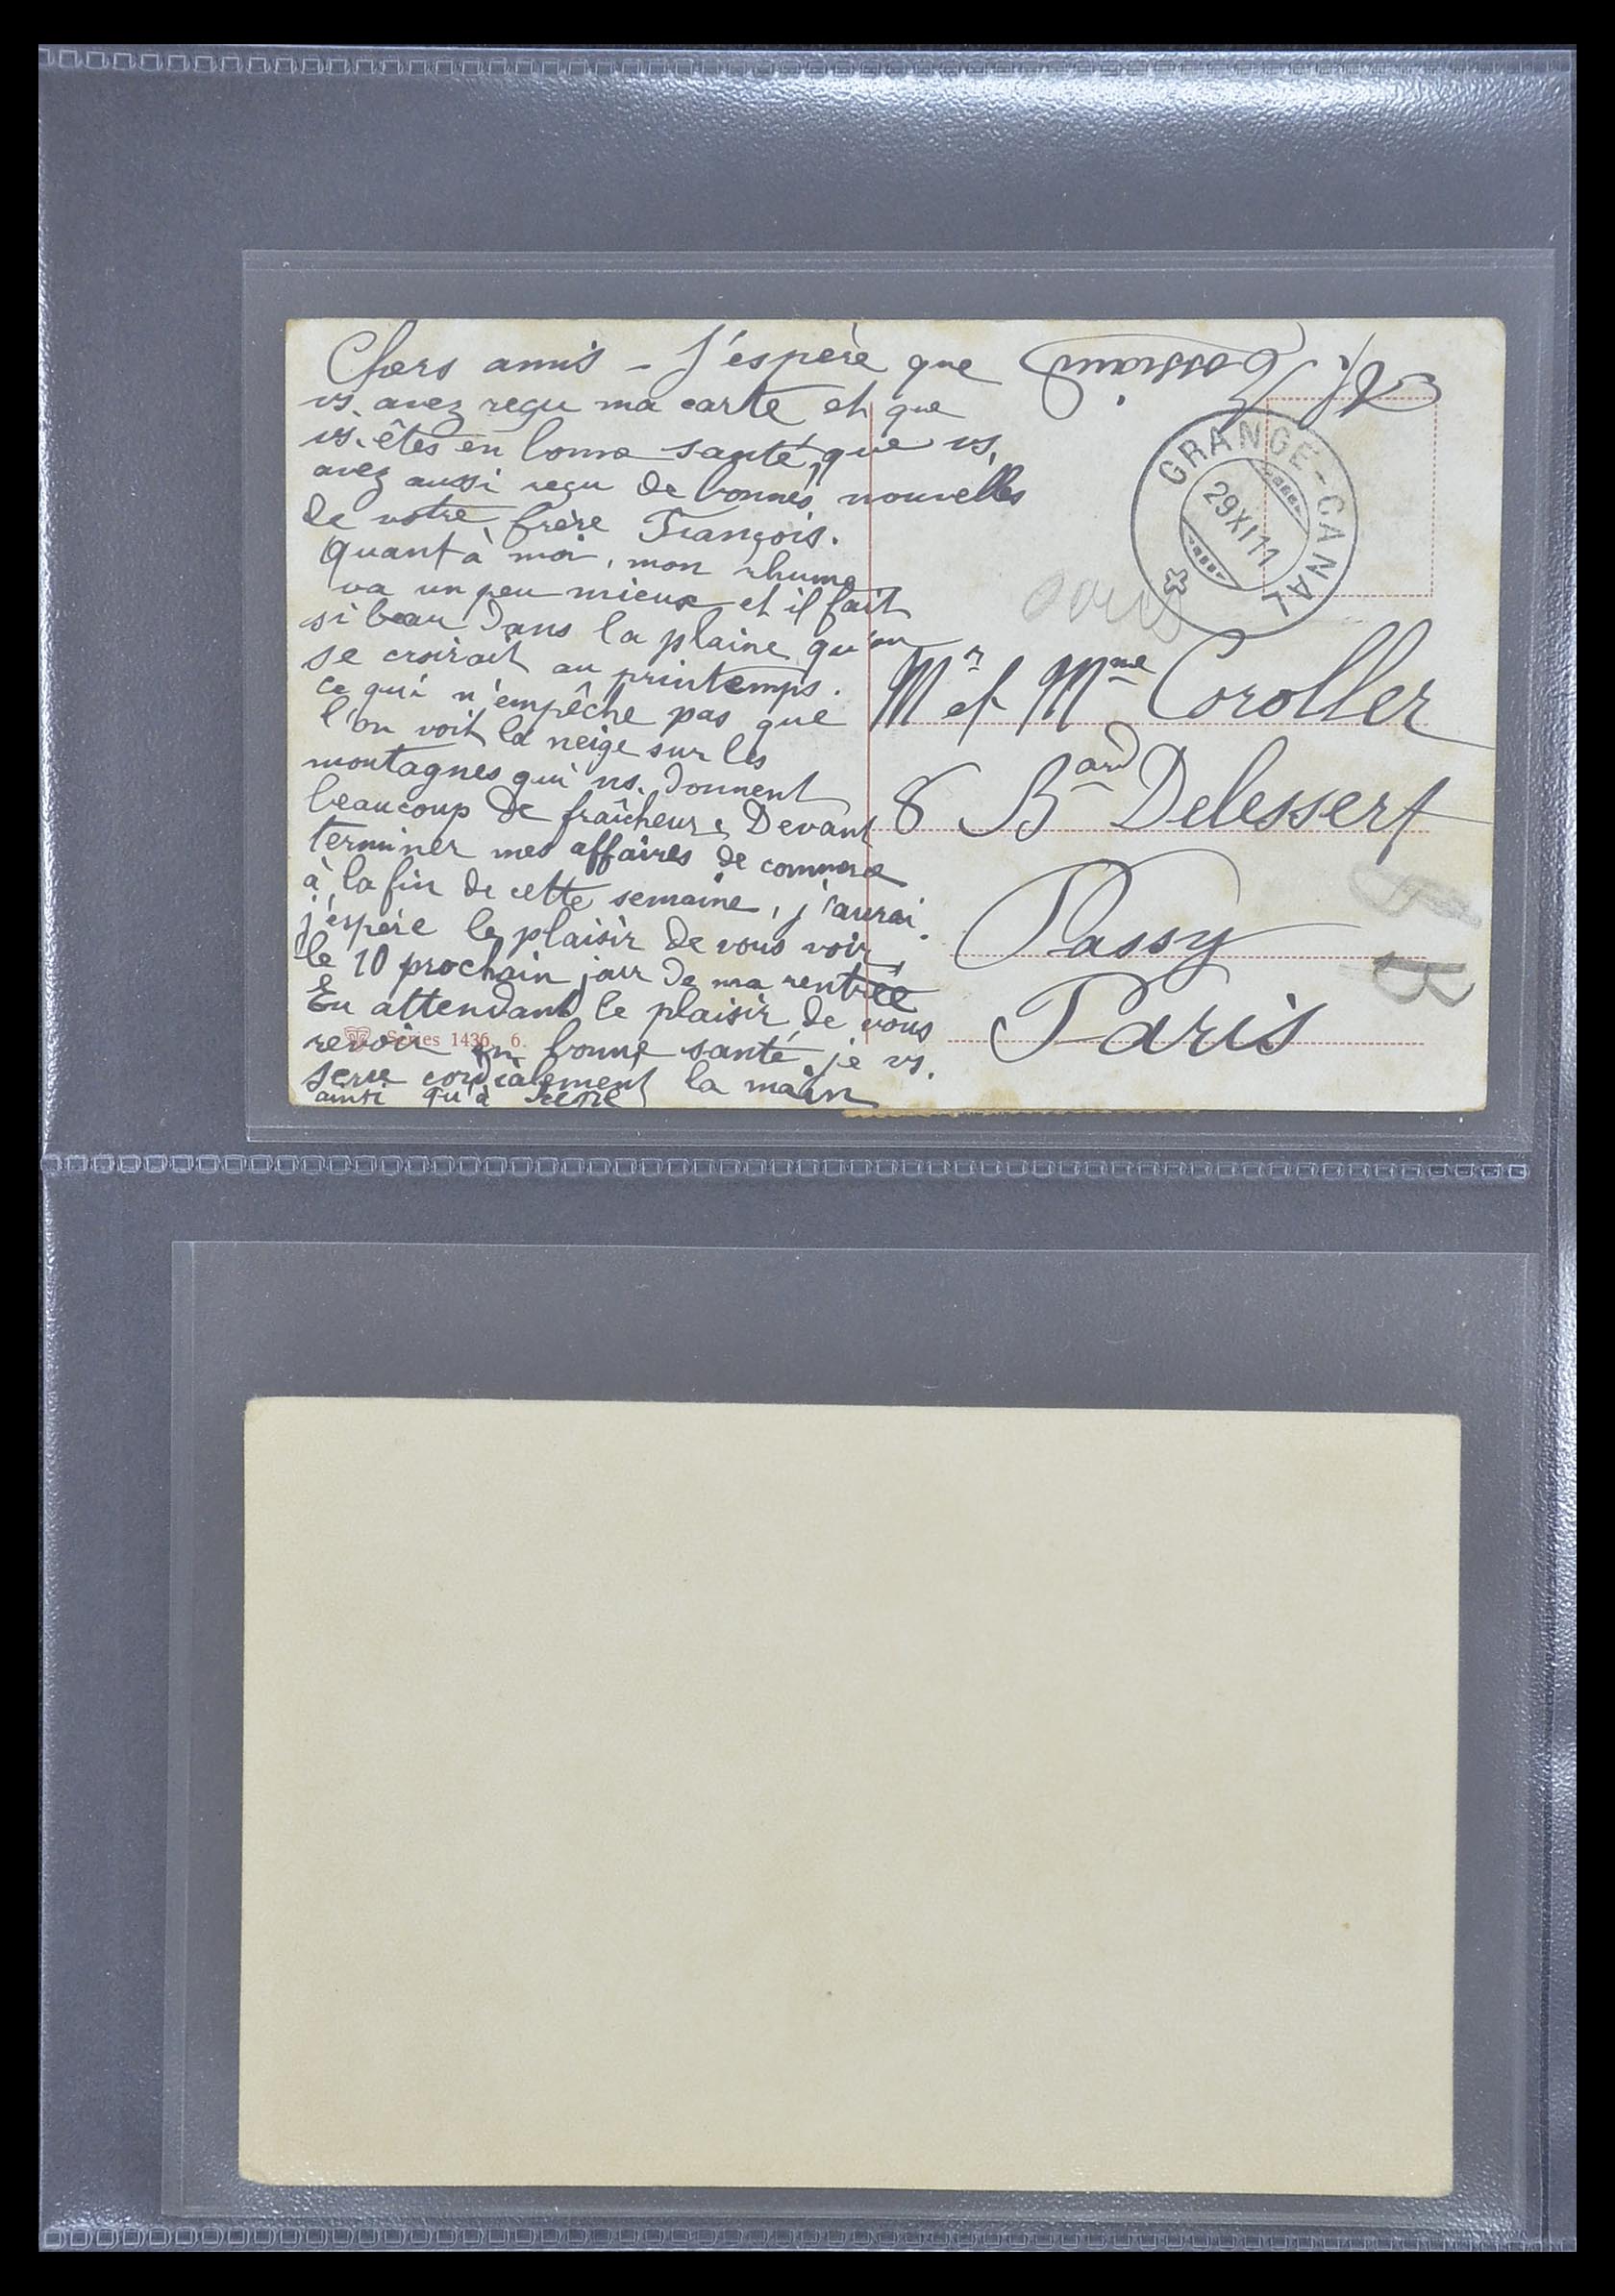 Chers amis - J'espère que
vs. avez reçu ma carte et que
vs. êtes en bonne santé, que vs.
avez aussi reçu de bonnes nouvelles
de votre frère François.
Quant à moi, mon rhume
va un peu mieux et il fait
si beau dans la plaine qu'on
se croirait au printemps.
ce qui n'empêche pas que
l'on voit la neige sur les
montagnes qui ns. donnent
beaucoup de fraîcheur. Devant
terminer mes affaires de commerce
à la fin de cette semaine, j'aurai
j'espère le plaisir de vous voir
le 10 prochain jour de ma rentrée
En attendant le plaisir de vous
revoir en bonne santé, je vs.
serre cordialement la main
ainsi qu'à
Series 1436. 6.
GRANGE-CANAL
29 XI 11
Mr et Mme Coroller
8 Bard Delessert
Passy
Paris
B